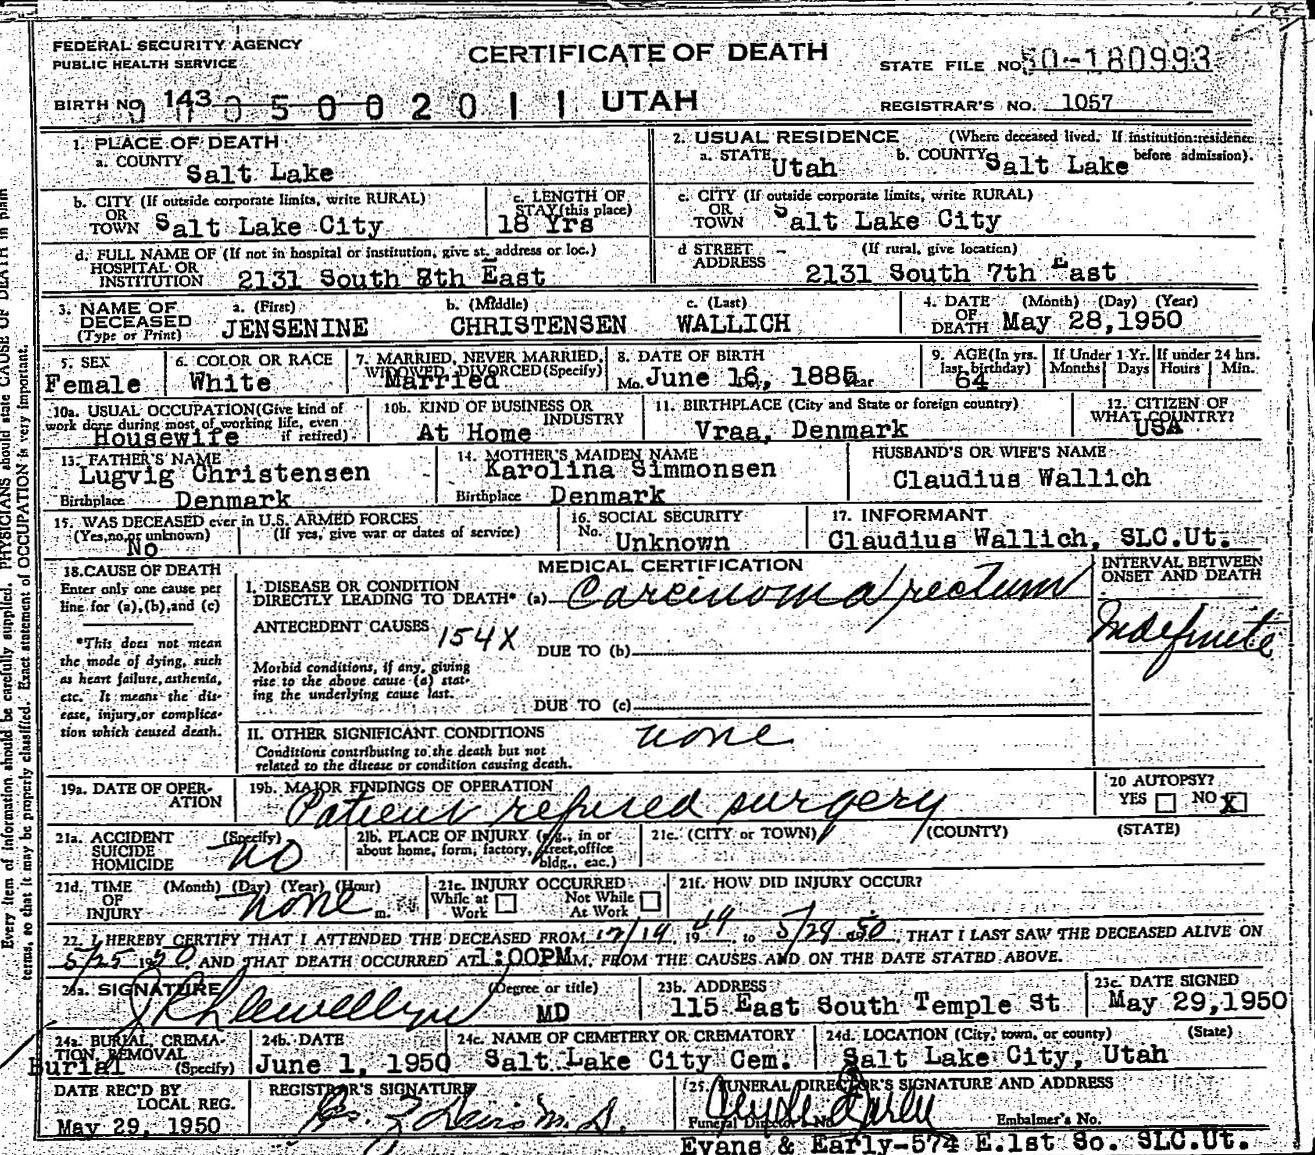 FEDERAL SECURITY AGENCY
PUBLIC HEALTH SERVICE
CERTIFICATE OF DEATH
STATE FILE NO. 50-180993
BIRTH NO. 143 0500 2011 UTAH
REGISTRAR'S NO. 1057
1. PLACE OF DEATH
a. COUNTY Salt Lake
2. USUAL RESIDENCE (Where deceased lived. If institution: residence before admission).
a. STATE Utah b. COUNTY Salt Lake
b. CITY (If outside corporate limits, write RURAL)
OR
TOWN Salt Lake City
c. LENGTH OF
STAY (this place)
18 Yrs
c. CITY (If outside corporate limits, write RURAL)
OR
TOWN Salt Lake City
d. FULL NAME OF (If not in hospital or institution, give st. address or loc.)
HOSPITAL OR
INSTITUTION 2131 South 8th East
d STREET (If rural, give location)
ADDRESS 2131 South 7th East
3. NAME OF DECEASED (Type or Print)
a. (First) b. (Middle) c. (Last)
JENSENINE CHRISTENSEN WALLICH
4. DATE OF DEATH (Month) (Day) (Year)
May 28,1950
5. SEX
Female
6. COLOR OR RACE
White
7. MARRIED, NEVER MARRIED,
WIDOWED, DIVORCED (Specify)
Married
8. DATE OF BIRTH
Mo. June 16, 1885 Year
9. AGE (In yrs. last birthday)
64
If Under 1 Yr. Months Days
If under 24 hrs. Hours Min.
10a. USUAL OCCUPATION (Give kind of work done during most of working life, even if retired)
Housewife
10b. KIND OF BUSINESS OR INDUSTRY
At Home
11. BIRTHPLACE (City and State or foreign country)
Vraa, Denmark
12. CITIZEN OF WHAT COUNTRY?
USA
13. FATHER'S NAME
Lugvig Christensen
Birthplace Denmark
14. MOTHER'S MAIDEN NAME
Karolina Simmonsen
Birthplace Denmark
HUSBAND'S OR WIFE'S NAME
Claudius Wallich
15. WAS DECEASED ever in U.S. ARMED FORCES
(Yes, no, or unknown) (If yes, give war or dates of service)
No
16. SOCIAL SECURITY
No. Unknown
17. INFORMANT
Claudius Wallich, SLC.Ut.
18. CAUSE OF DEATH
Enter only one cause per
line for (a), (b), and (c)
*This does not mean
the mode of dying, such
as heart failure, asthenia,
etc. It means the dis-
ease, injury, or complica-
tion which caused death.
MEDICAL CERTIFICATION
I. DISEASE OR CONDITION
DIRECTLY LEADING TO DEATH* (a) Carcinoma / rectum
INTERVAL BETWEEN
ONSET AND DEATH
Indefinite
ANTECEDENT CAUSES 154X
DUE TO (b)
Morbid conditions, if any, giving
rise to the above cause (a) stat-
ing the underlying cause last.
DUE TO (c)
II. OTHER SIGNIFICANT CONDITIONS none
Conditions contributing to the death but not
related to the disease or condition causing death.
19a. DATE OF OPER-
ATION
19b. MAJOR FINDINGS OF OPERATION
Patient refused surgery
20 AUTOPSY?
YES NO X
21a. ACCIDENT (Specify)
SUICIDE
HOMICIDE no
21b. PLACE OF INJURY (e.g., in or
about home, form, factory, street, office
bldg., eac.)
21c. (CITY or TOWN) (COUNTY) (STATE)
21d. TIME (Month) (Day) (Year) (Hour)
OF
INJURY none m.
21e. INJURY OCCURRED
While at Work Not While At Work
21f. HOW DID INJURY OCCUR?
22. I HEREBY CERTIFY THAT I ATTENDED THE DECEASED FROM 12/19, 1949, to 5/28 1950, THAT I LAST SAW THE DECEASED ALIVE ON
5/25 1950, AND THAT DEATH OCCURRED AT 1:00PM m, FROM THE CAUSES AND ON THE DATE STATED ABOVE.
23a. SIGNATURE (Degree or title)
Llewellyn MD
23b. ADDRESS
115 East South Temple St
23c. DATE SIGNED
May 29,1950
24a. BURIAL, CREMA-
TION, REMOVAL
(Specify)
Burial
24b. DATE
June 1, 1950
24c. NAME OF CEMETERY OR CREMATORY
Salt Lake City Cem.
24d. LOCATION (City, town, or county) (State)
Salt Lake City, Utah
DATE REC'D BY
LOCAL REG.
May 29, 1950
REGISTRAR'S SIGNATURE
25. FUNERAL DIRECTOR'S SIGNATURE AND ADDRESS
Funeral Director No. Embalmer's No.
Evans & Early-574 E.1st So. SLC.Ut.
Every item of information should be carefully supplied. PHYSICIANS should state CAUSE OF DEATH in plain
terms, so that it may be properly classified. Exact statement of OCCUPATION is very important.